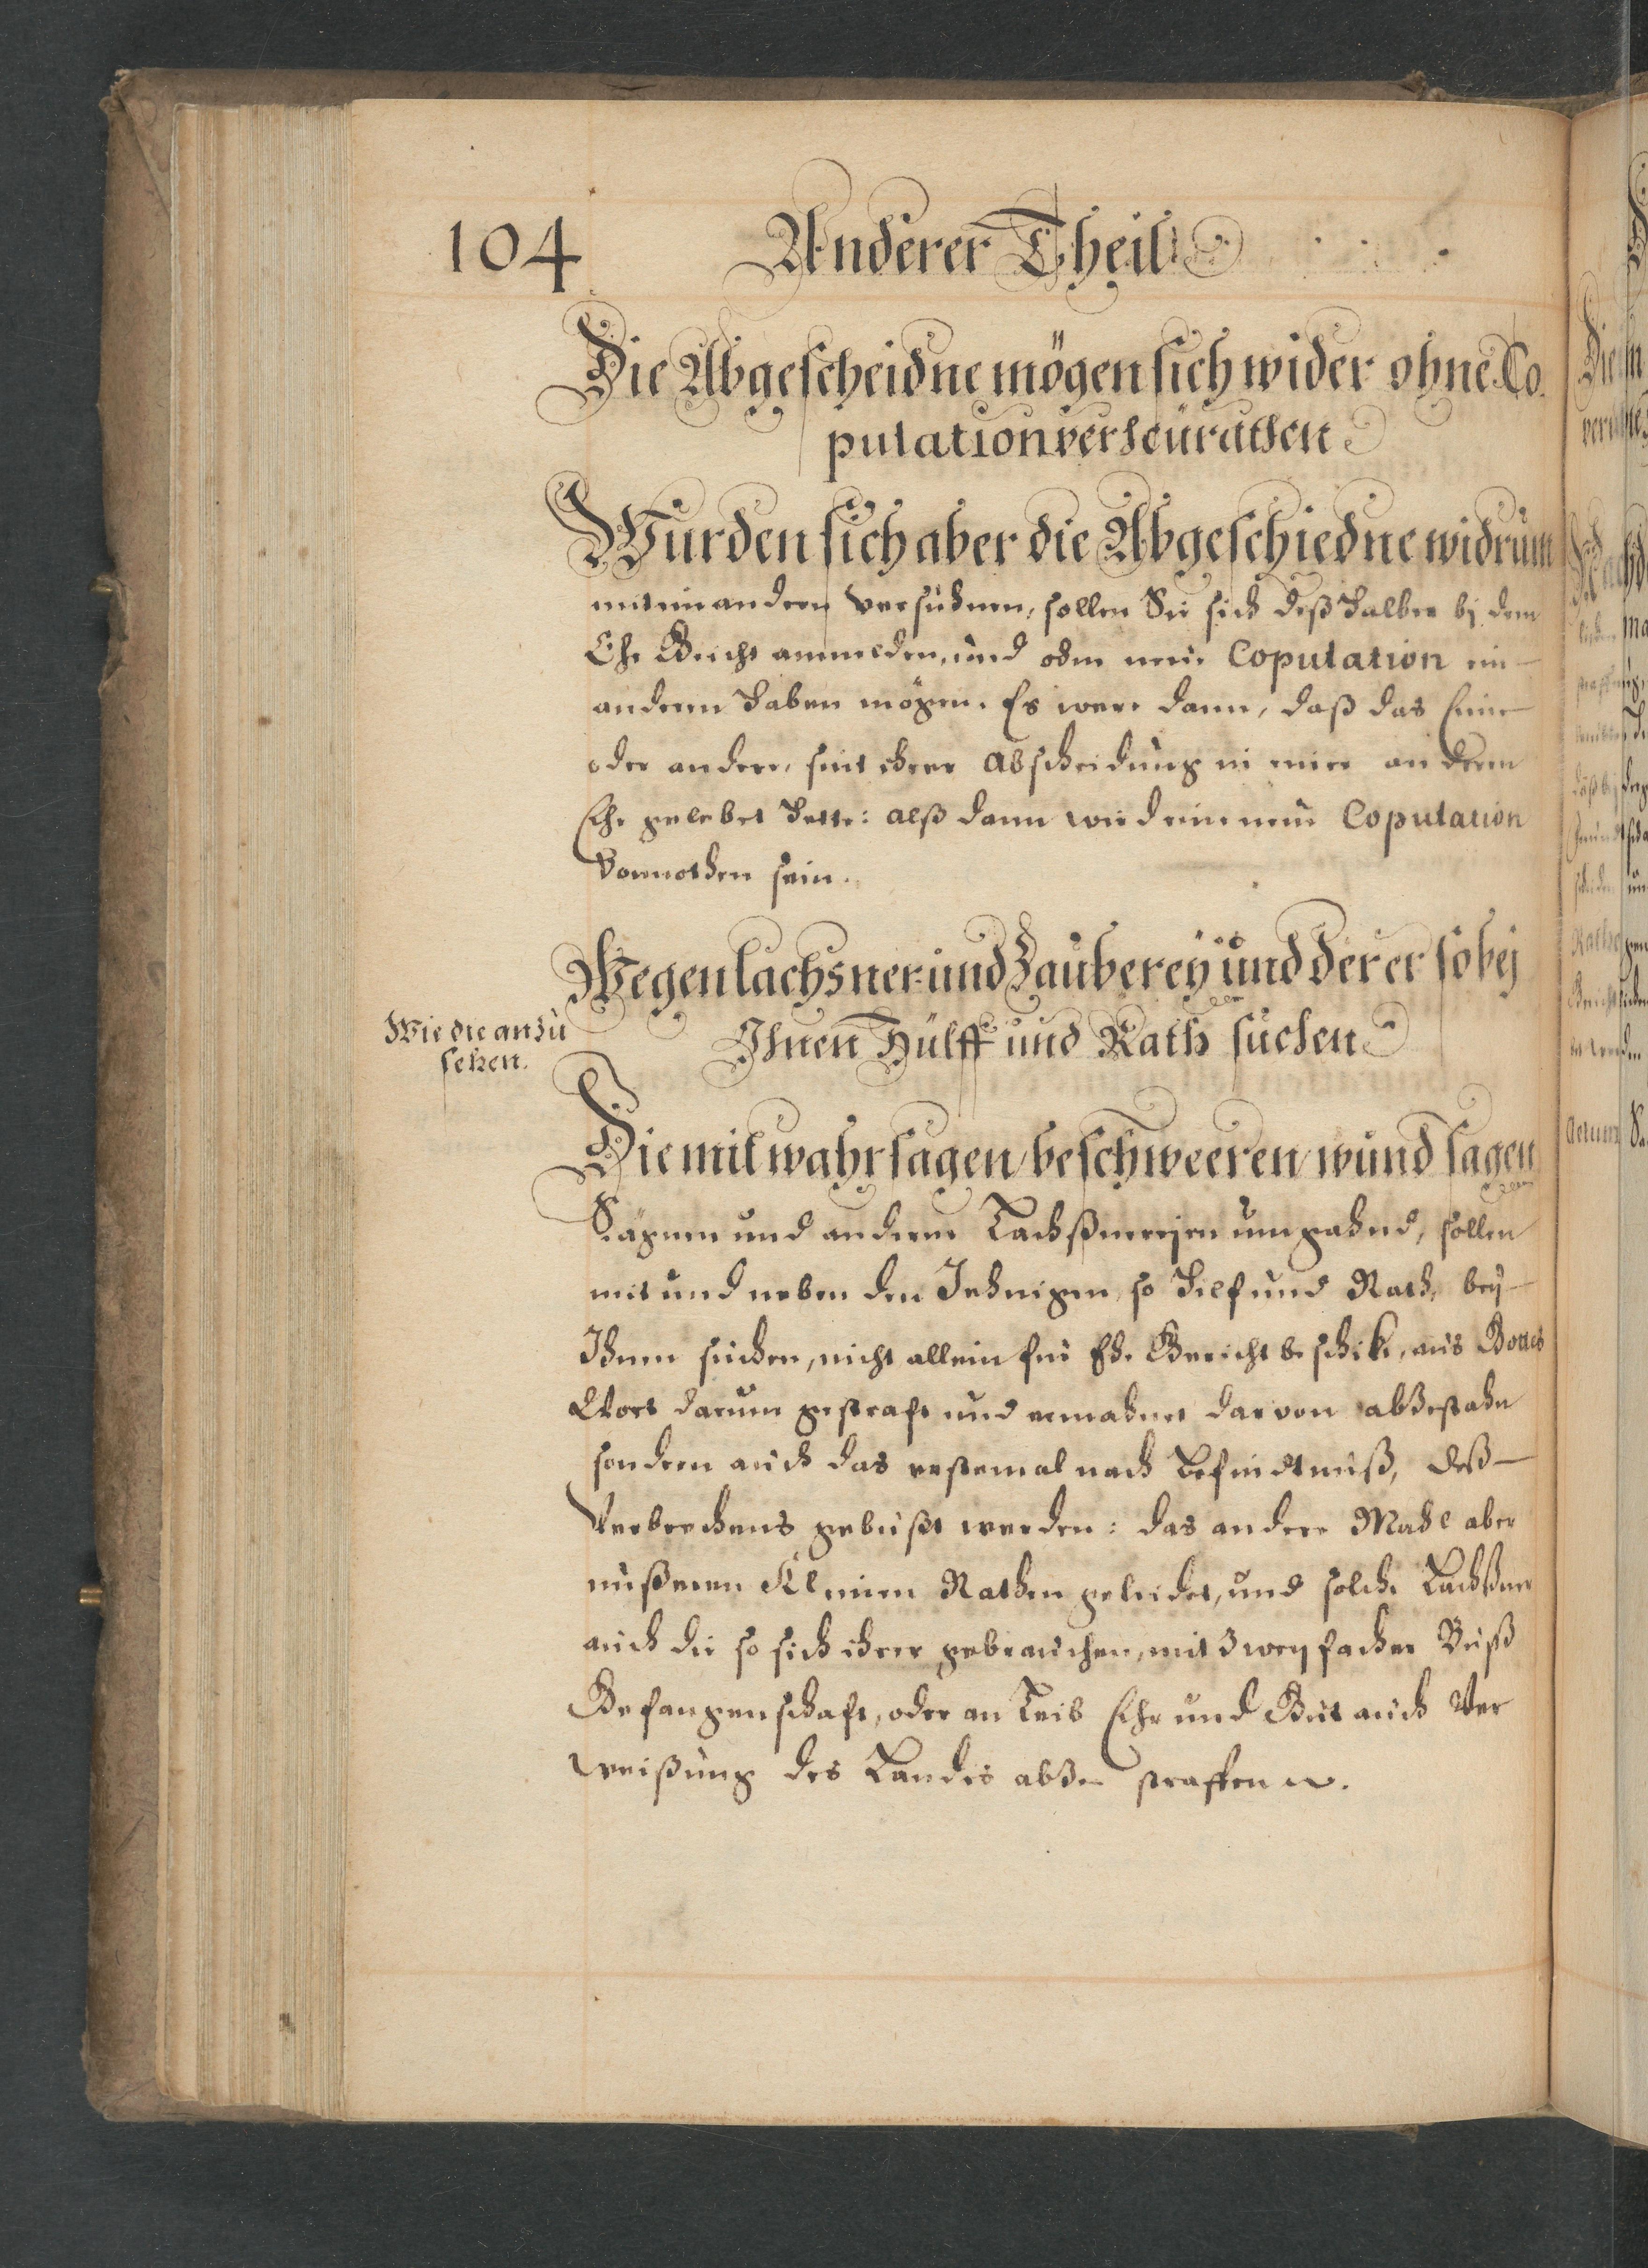 104
Anderer Theil
Die Abgescheidne mögen sich wider ohne Co.
pulation verheürathen
Wurden sich aber die Abgeschiedne widrum
mit einanderen versühnen, sollen Sie sich deßhalben bj dem
Ehe Gricht anmelden, und ohne neüe Coputation ein
anderen haben mögen. Es were dann, daß das Eine
oder andere, seit ihrer Abscheidung in einer anderen
Ehe gelebet hette: alß dann wird eine neüe Coputation
vonnöthen sein.
Wegen lachsner und Zauberey und derer so bej
Wie die anzu
sehen.
Ihnen Hülff und Rath suchen
Die mit wahrsagen, beschweeren, wund sagen
Sägnen und anderen Lachßnereyen umgahnd, sollen
mit und neben den Jehnigen so Hilf und Rath, bey
Ihnen suchen, nicht allein für Eh. Gericht beschikt, aus Gottes
Wort darum gestraft und vermahnet darvon abzestahn
sondern auch das erstemal nach Befindtnuß, deß
Verbrechens gebüßt werden: das andere Mahl aber
unßeren Kleinen Räthen geleidet, und solche Lachßner
auch die so sich ihrer gebrauchen, mit zweyfacher Buß
Gefangenschaft, oder an Leib Ehr und Gut auch Ver
weißung des Landes abze straffen